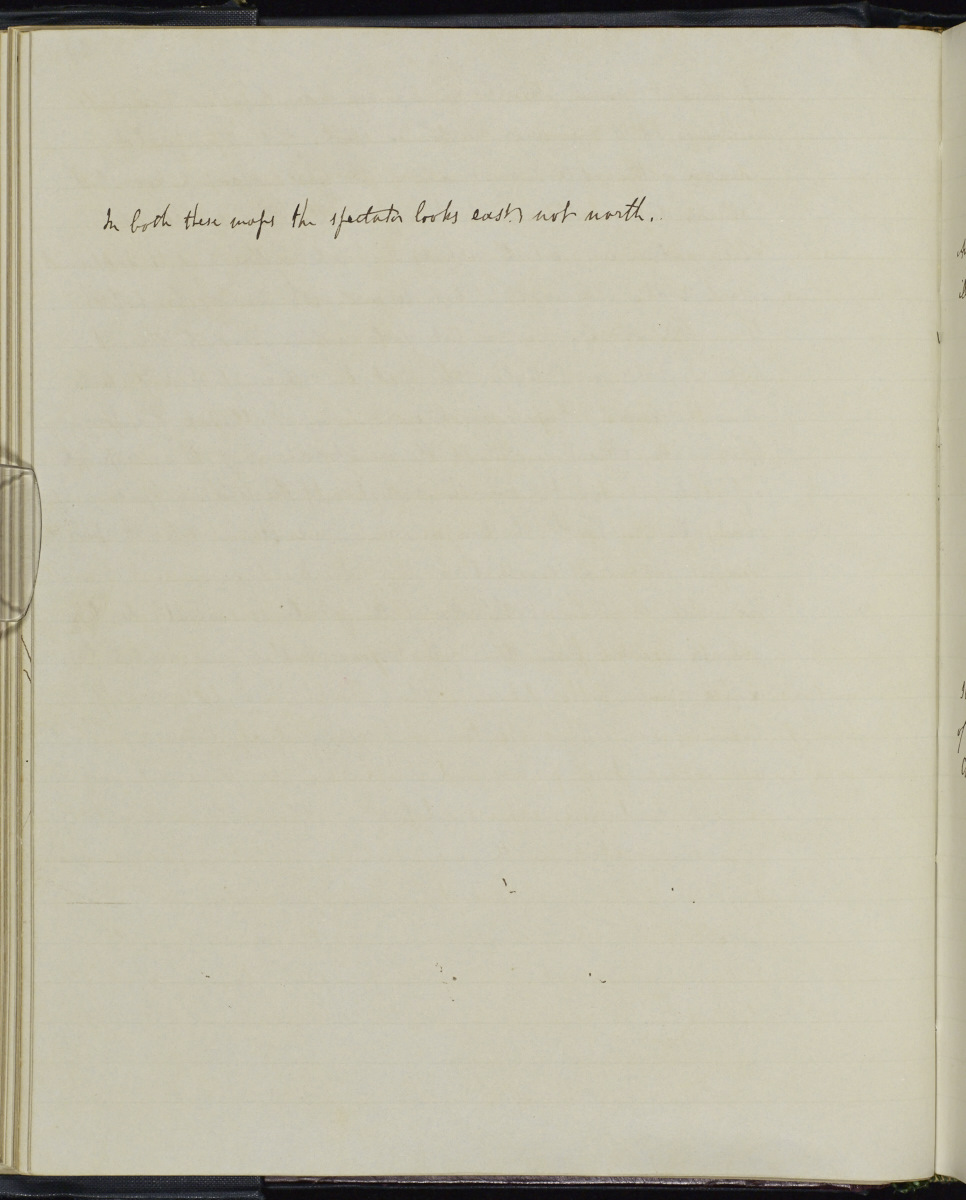 In both these maps the spectator looks east & not north.